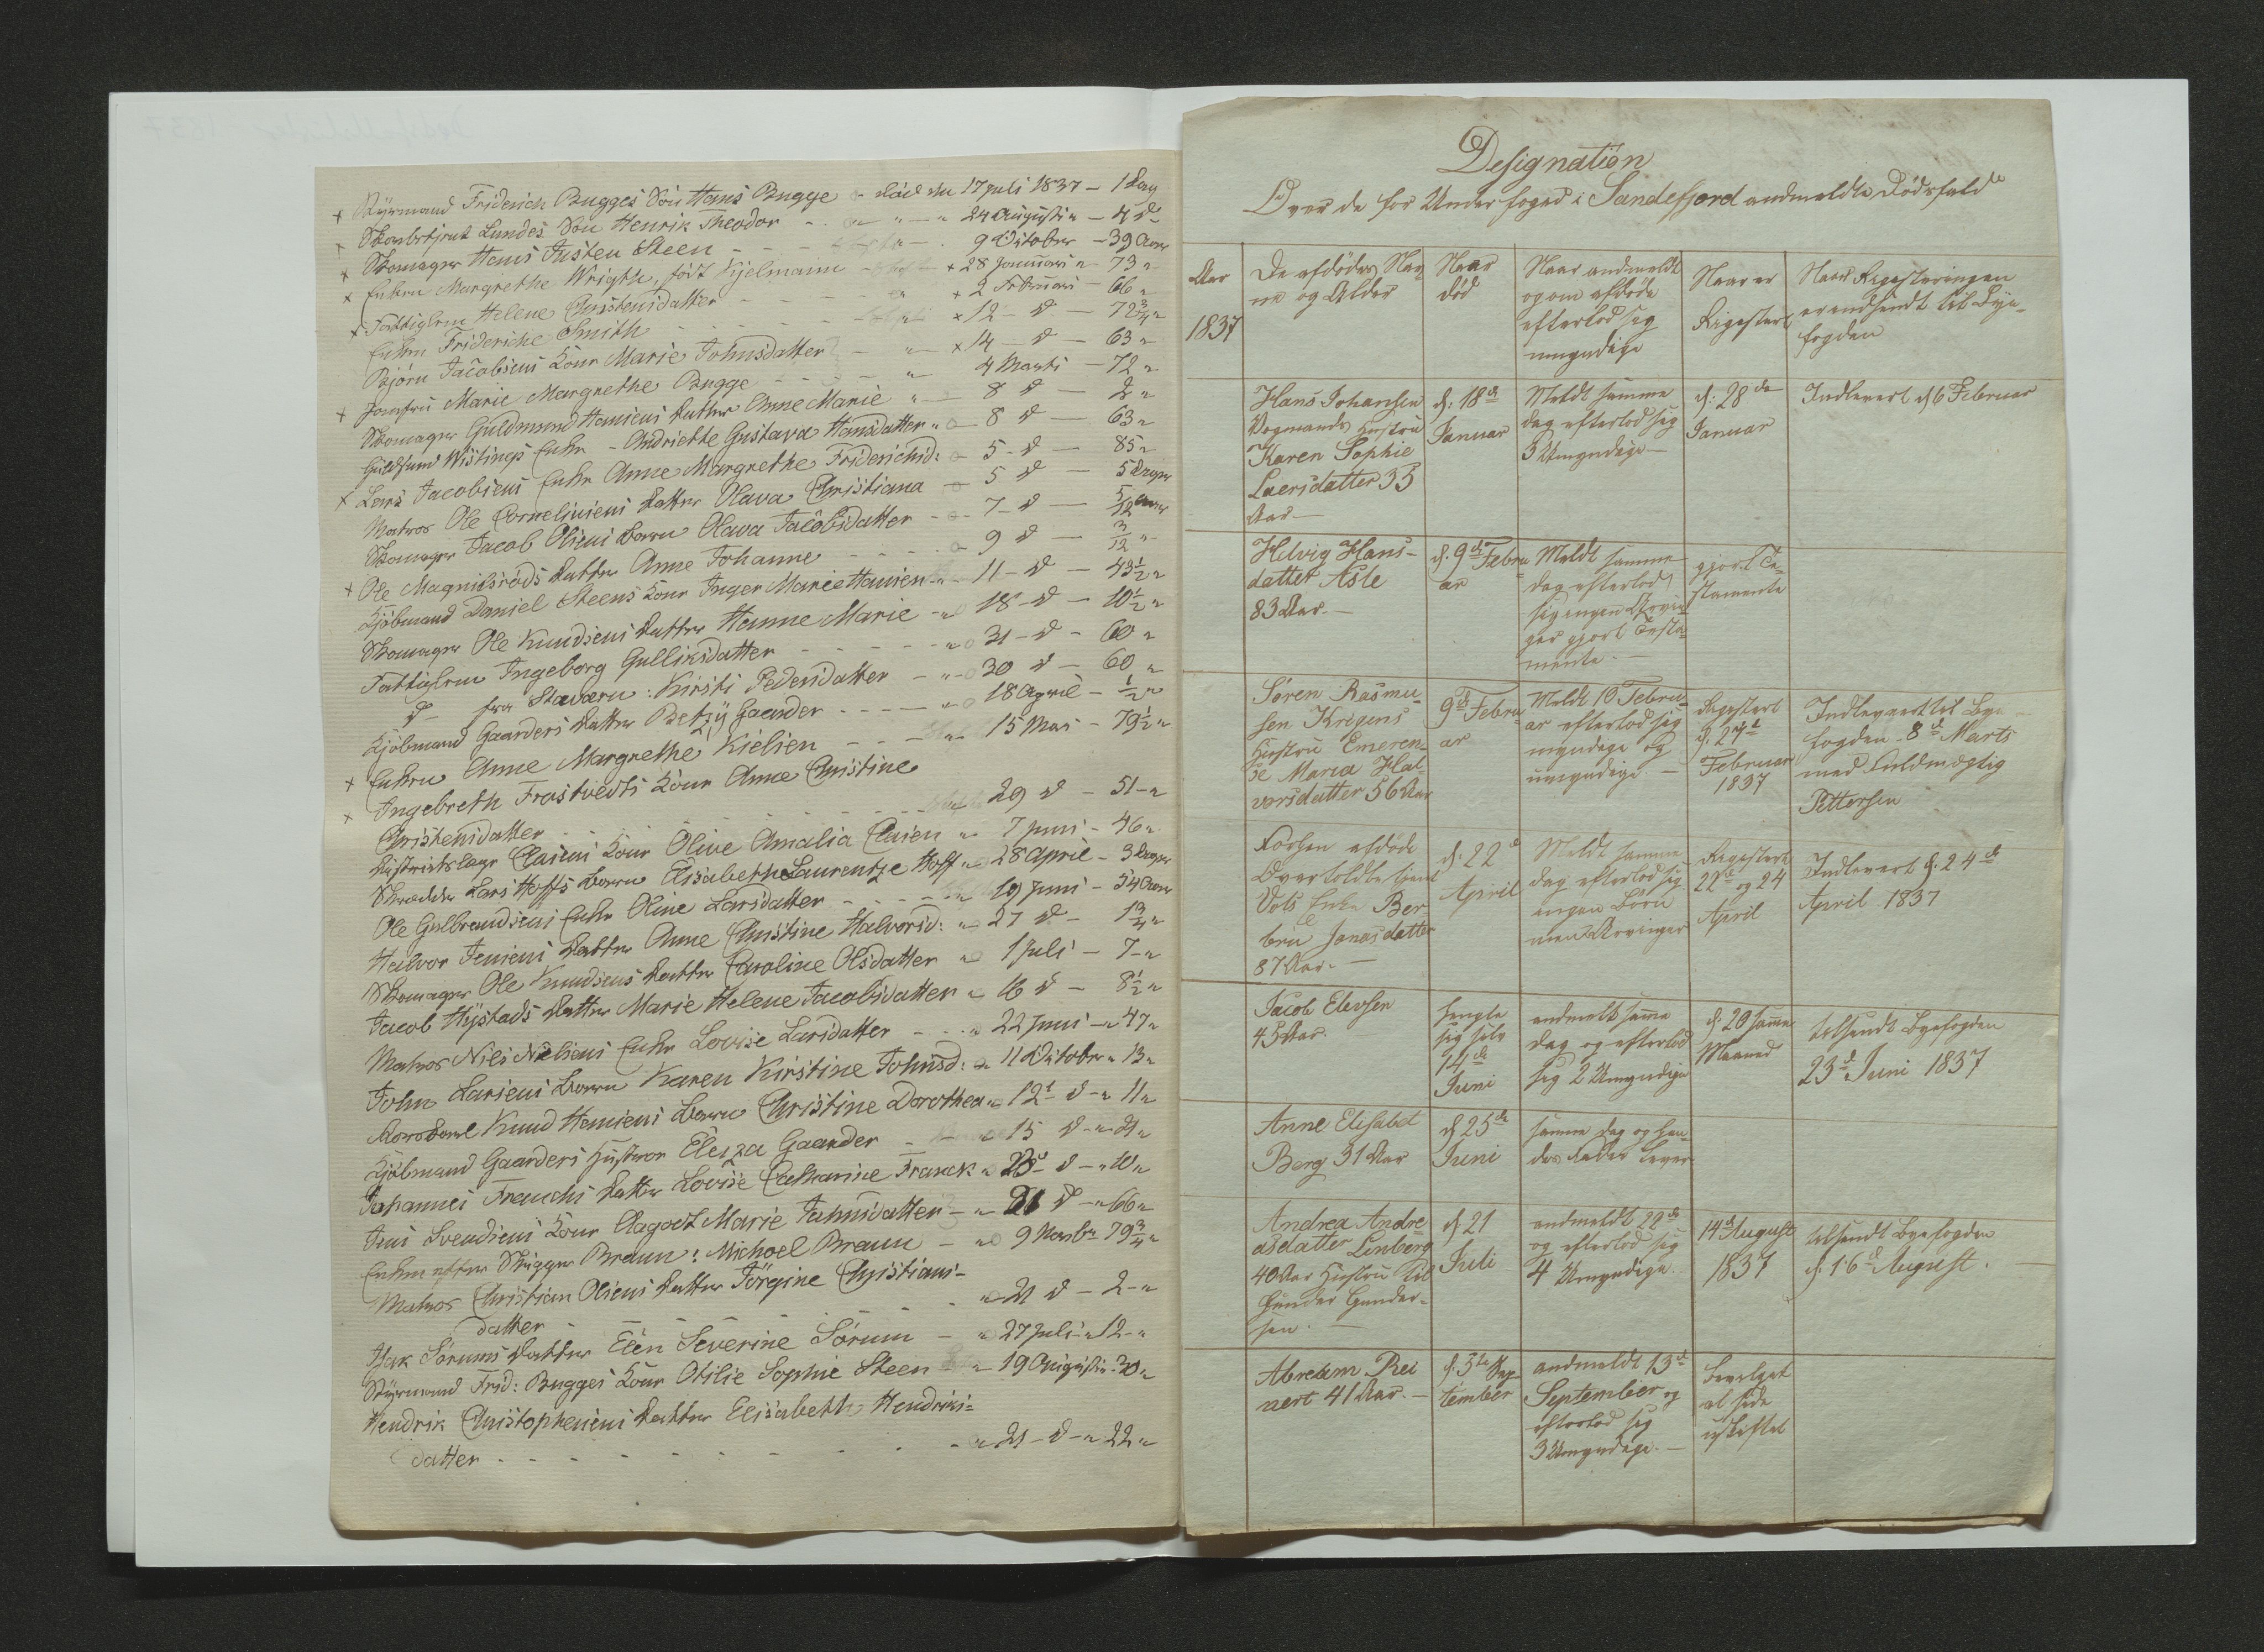 × Styrmand Friderich Bugges Søn Hans Bugge - død den 17 Juli 1837 - 1 Dag
Lundes Søn Henrik Theodor - 24 Augusti " - 4 d
× Skomager Hans Justen Steen - 9 October - 39 Aar
× Enken Margrethe Wright, født Kjelmann - × 28 Januari " 73 "
× Fattiglem Helene Christensdatter - × 2 Februari - 66 "
Enken Frideriche Smith - × 12 - d - 72 3/4 "
Bjørn Jacobsens Kone Marie Johnsdatter - × 14 - d - 63 "
× Jomfru Marie Margrethe Bugge - 4 Marts - 72 "
Skomager Guldmund Hansens Datter Anne Marie " 8 d - 2 "
Wistings Enke - Andriette Gustava Hansdatter " 8 d - 63 "
× Lars Jacobsens Enke Anne Margrethe Friderichsd: 5 - d - 85 "
Matros Ole Corneliusens Datter Olava Christiana - 5 d - 5 Dage
Skomager Jacob Olsens Barn Olava Jacobsdatter - 7 - d - 5/12 Aar
× Ole Magnilsrøds Datter Anne Johanne - 9 d - 3/12 "
Kjøbmand Daniel Steens Kone Inger Marie Hansen - 11 - d - 43 1/2 "
Skomager Ole Knudsens Datter Hanne Marie - 18 - d - 10 1/2 "
Fattiglem Ingeborg Gulliksdatter - 31 - d - 60 "
d fra Stavern: Kirsti Pedersdatter - 30 d - 60 "
Kjøbmand Gaarders Datter Betzy Gaarder - 18 April - 1/2 "
× Enken Anne Margrethe Kielsen - 15 Mai - 79 1/2 "
× Ingebreth Frostvedts Kone Anne Christine
Christensdatter - 29 d - 51 - "
Districtslæge Clasens Kone Olive Amalia Clasen " 7 Juni - 46 "
Skrædder Lars Hoffs Barn Elisabeth Laurentze Hoff " 28 April - 3 Dage
Ole Gulbrandsens Enke Oline Larsdatter - 19 Juni - 54 Aar
Halvor Jensens Datter Anne Christine Halvorsd: " 27 d - 1 3/4 "
Skomager Ole Knudsens Datter Caroline Olsdatter " 1 Juli - 7 - "
Jacob Hystads Datter Marie Helene Jacobsdatter " 16 d - 8 1/2 "
Matros Niels Nielsens Enke Lovise Larsdatter - 22 Juni - " 47 "
John Larsens Barn Karen Kirstine Johnsd: " 11 October " 13 "
Knud Hansens Barn Christine Dorothea " 12 - d - " 11 "
Kjøbmand Gaarders Hustrue Eliza Gaarder - 15 d - "
Johannes Francks Datter Lovise Catharine Franck " 25 - d - " 10 "
Jens Svendsens Kone Aagodt Marie Johnsdatter - " 31 d - " 66 "
Enken efter Skipper Braun: Michael Braun - 9 Novbr 79 3/4 "
Matros Christian Olsens Datter Jörgine Christians-
datter - 21 d - 2 - "
Isak Sørums Datter Elen Severine Sørum - 27 Juli " 12 - "
Styrmand Frid: Bugges Kone Otilie Sophie Steen " 19 Augusti " 30 "
Hendrik Christophersens Datter Elisabeth Hendriks-
datter - " 21 - d - " 22 "
Designation
Over de for Underfoged i Sandefjord anmeldte Dødsfald
Aar
1837
De afdødes Nav-
ne og Alder
Naar
død
Naar anmeldt
og om afdøde
efterlod sig
umyndige
Naar er
Rigestert
Naar Rigesteringen
er indsendt til Bye-
fogden
Hans Johansen
Vogmands Hustru
Karen Sophie
Laersdatter 33
Aar -
d: 18de
Januar
Meldt samme
dag efterlod sig
3 Umyndige -
d: 28de
Januar
Indlevert d 6 Februar
Helvig Hans-
datter Asle
83 Aar. -
d. 9de Febru-
ar
Meldt samme
dag efterlod
sig ingen Arvin-
ger gjort Testa-
mente. -
gjort Te-
stamente
Søren Rasmu-
sen Krøgens
Hustru Emeren-
se Maria Hal-
vorsdatter 56 Aar
9de Febru-
ar
Meldt 10 Febru-
ar efterlod sig
myndige og
umyndige -
Regestert
d. 27de
Februar
1837
Indlevert til Bye-
fogden 8de Marts
med Fuldmægtig
Pettersen
Forhen afdøde
Overtoldbetjent
Vols Enke Ber-
the Jonasdatter
87 Aar. -
d: 22de
April
Meldt samme
dag efterlod sig
ingen Børn
men Arvinger
Regestert
22de og 24
April
Indlevert d. 24de
April 1837
Jacob Elevsen
45 Aar.
hengte
sig selv
14de
Juni
andmelt samme
dag og efterlod
sig 2 Umyndige
d 20 samme
Maaned
tilsendt Byefogden
23de Juni 1837
Anne Elisabet
Berg 31 Aar
d 25de
Juni
samme dag og hen-
des Fader lever
Andrea Andre-
asdatter Lenberg
40 Aar Hustru til
Gunder Gunder-
sen. -
d 21
Juli
andmeldt 22de
og efterlod sig
4 Umyndige.
14de August
1837
tilsendt Byefogden
d. 16de August. -
Abraham Rei
nert 41 Aar. -
d. 3de Sep-
tember
andmeldt 13de
September og
efterlod sig
3 Umyndige. -
bevilget
at side
uskiftet